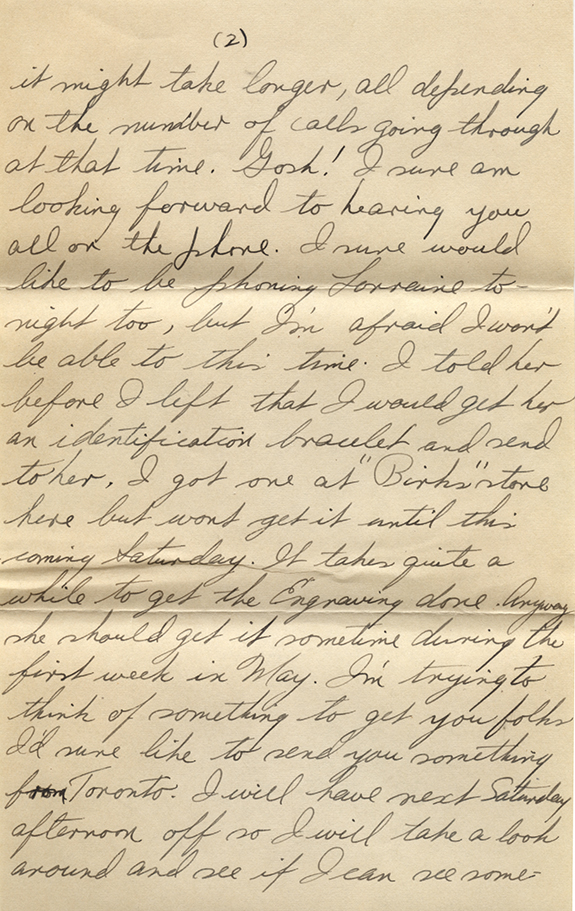 (2)
it might take longer, all depending
on the number of calls going through
at that time. Gosh! I sure am
looking forward to hearing you
all on the phone. I sure would
like to be phoning Lorraine to-
night too, but I'm afraid I won't
be able to this time. I told her
before I left that I would get her
an identification bracelet and send
to her. I got one at "Birks" store
here but wont get it until this
coming Saturday. It takes quite a
while to get the Engraving done. Anyway
she should get it sometime during the
first week in May. I'm trying to
think of something to get you folks
I'd sure like to send you something
from Toronto. I will have next Saturday
afternoon off so I will take a look
around and see if I can see some-